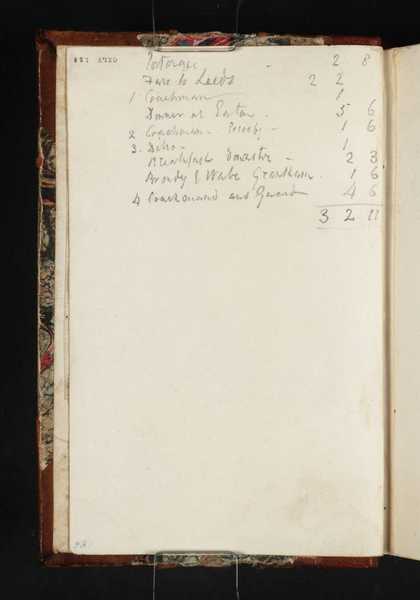 Postages - 2 8
Fare to Leeds 2 2
1 Coachman 1
Dinner at Eaton. 5 6
2 Coachman - 1 6
3. Ditto - 1
Breakfast Doncaster - 2 3
Brandy & Water Grantham. 1 6
4 Coachman and Guard 4 6
3 2 11